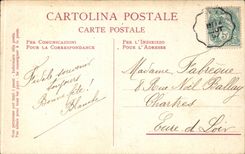 CARTOLINA POSTALE
CARTE POSTALE
PER COMUNICAZIONI
POUR LA CORRESPONDANCE
PER L'INDIRIZZO
POUR L'ADRESSE
souvenir
toujours
Bonne fête!
Blanche
Madame Fabrègue
8 Rue Noël Ballay
Chartres
Eure et Loir